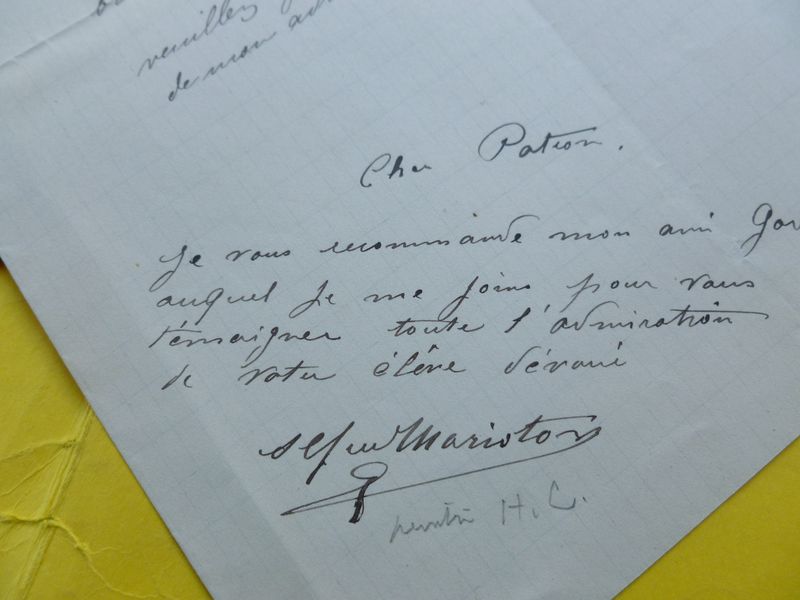 veuillez
de mon ad
Cher Patron.
Je vous recommande mon ami Gor
auquel je me joins pour vous
témoigner toute l'admiration
de votre élève dévoué
Alfred Marioton
peintre H.C.